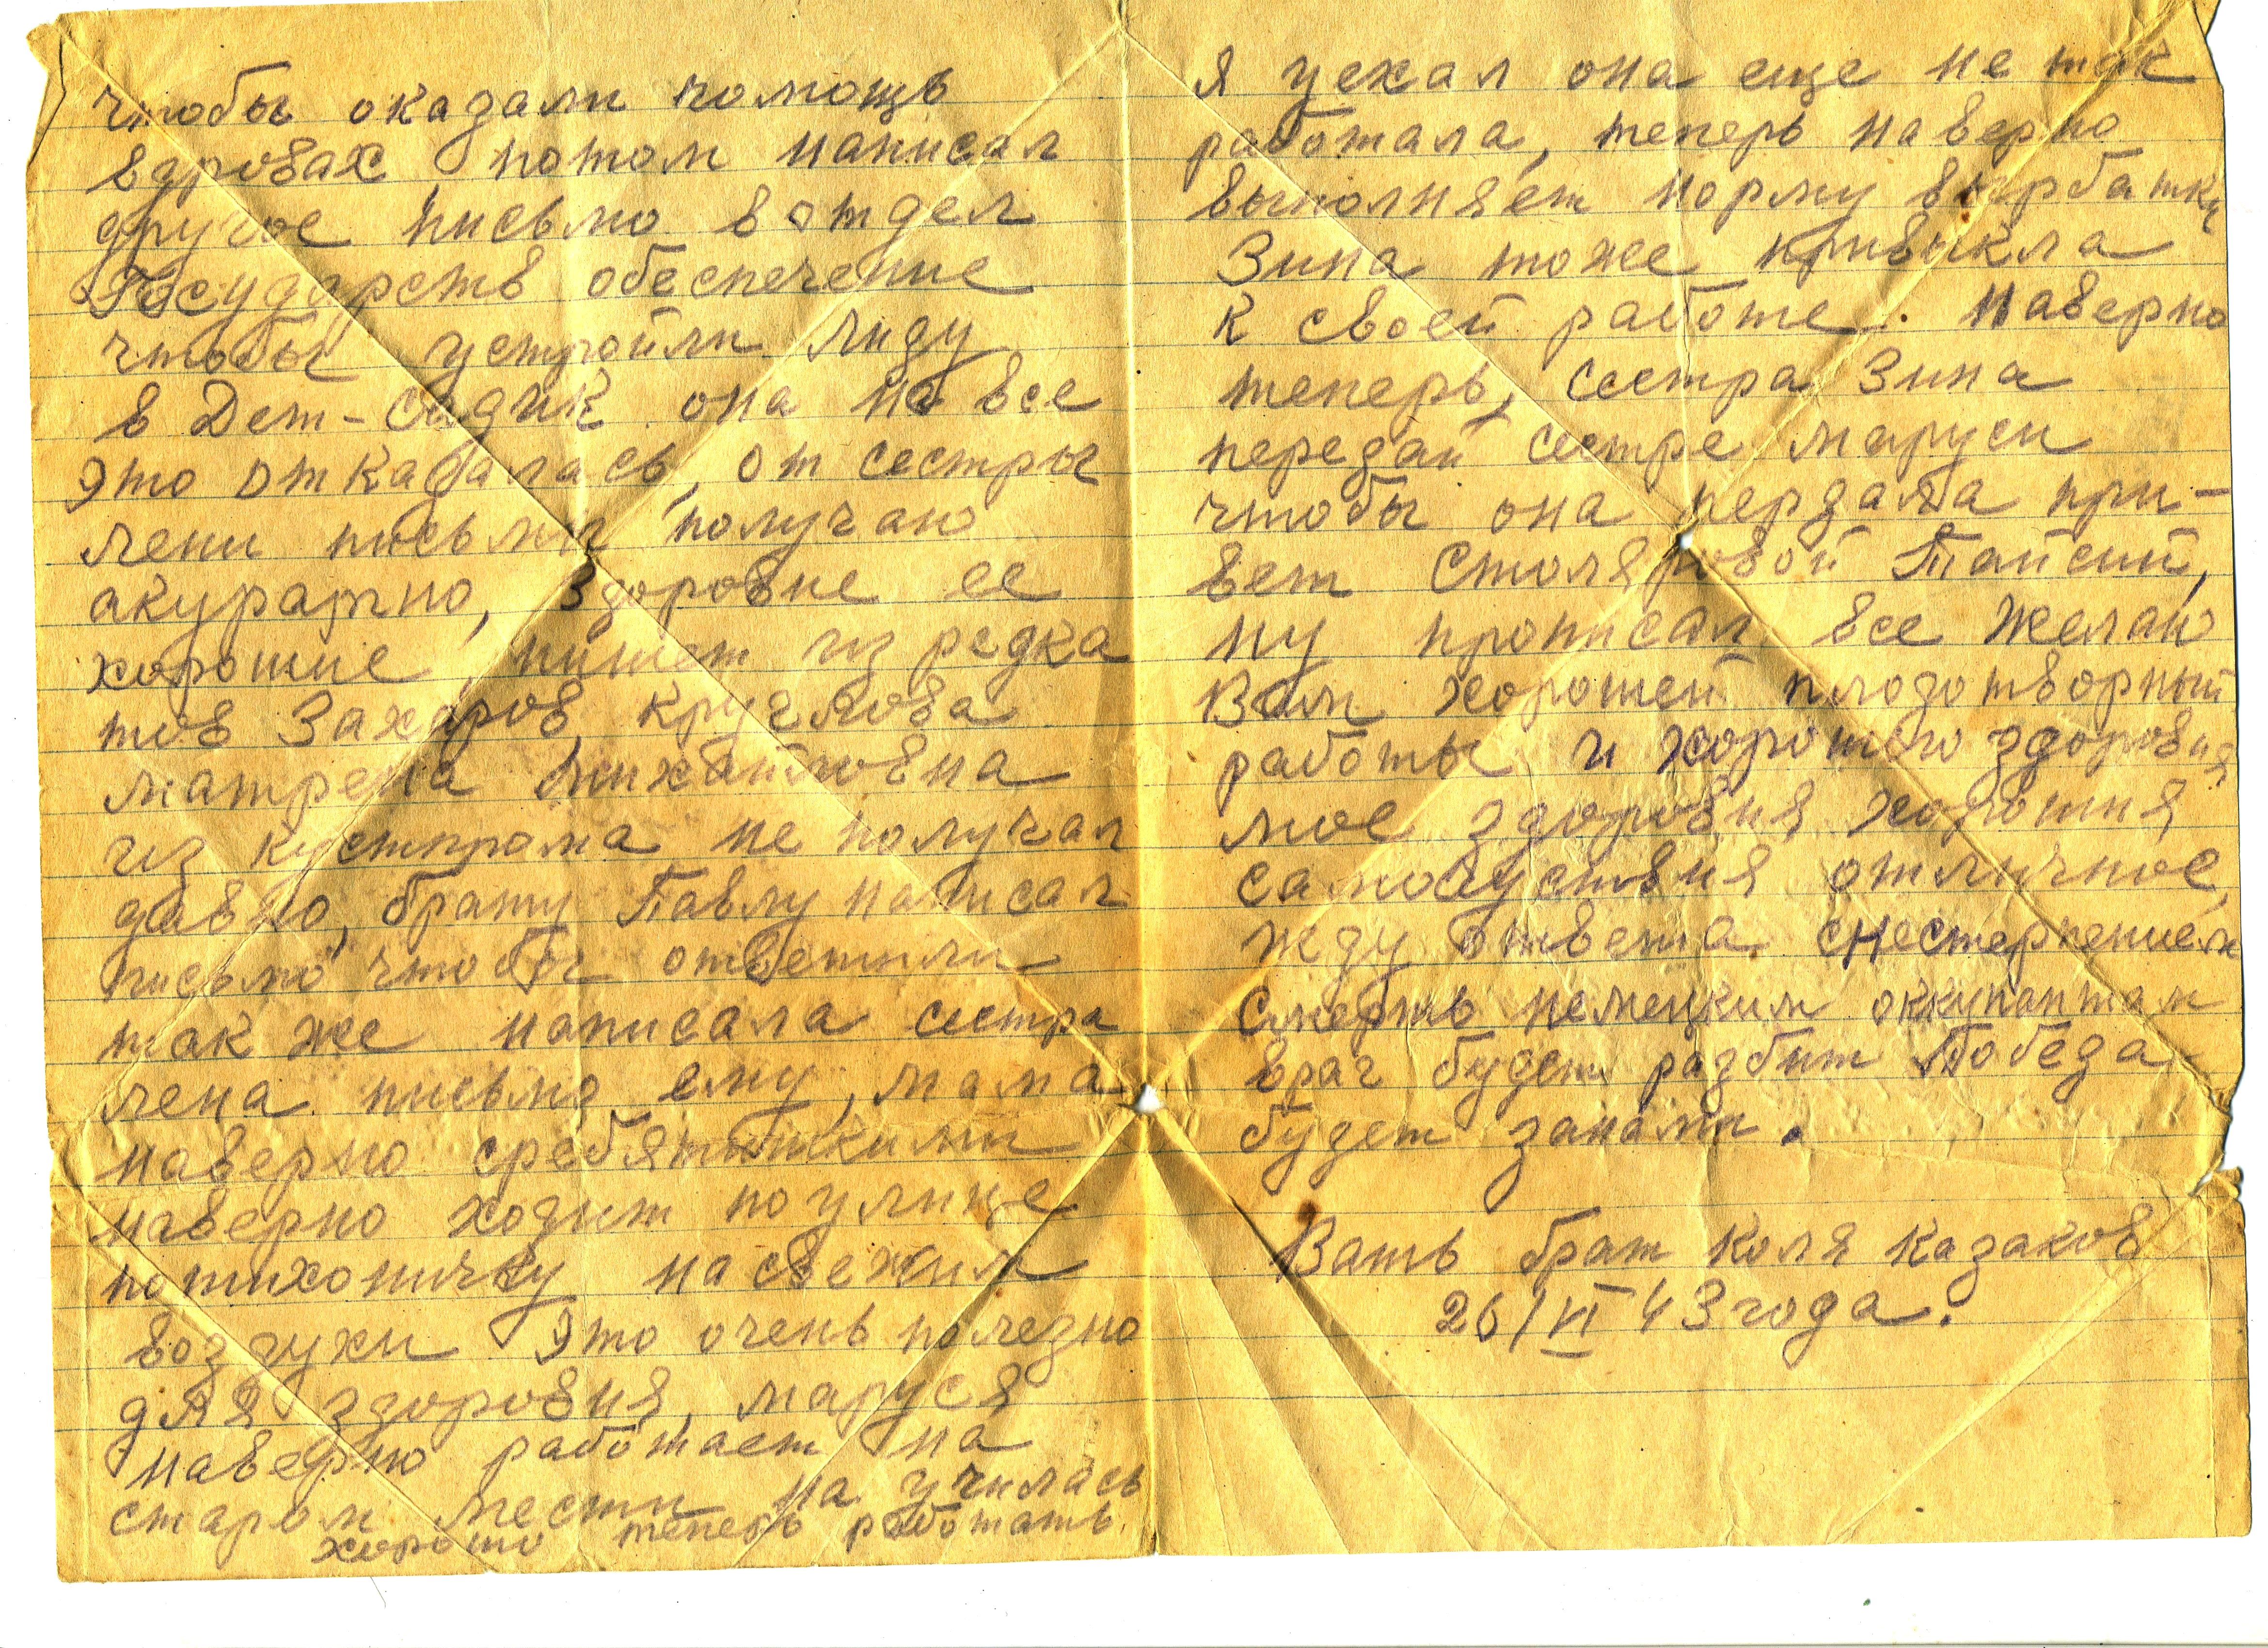 чтобы оказали помощь
вдровах, потом написал
другое письмо в отдел
Государств обеспечение
чтобы устройли лиду
в Дет-садик она на все
это отказалась, от сестры
лени письма получаю
акуратно, здоровие ее
хорошие, пишет из редка
тов Захаров, Круглова
матрена михайловна
из кустпрома не получал
давно, брату Павлу написал
письмо чтобы ответили
так же написала сестра
лена письмо ему, мама
наверно сребятишками
наверно ходит по улице
потихоничку на свежим
воздухи это очень полезно
для здоровия, маруся
наверно работает на
старом мести на училась
хорошо теперь работать.
я уехал она еще не так
работала, теперь наверно
выполняет норму выработки
Зина тоже привыкла
к своей работе. Наверно
теперь, сестра Зина
передай сестре маруси
чтобы она пердала при-
вет Столяровой Тайсий,
ну прописал все желаю
Вам хорошей плодотворный
работы и хорошого здоровия
мое здоровия хорошия
самочуствия отличное,
жду ответа снестерпением
Смерть немецким оккупантам
враг будет разбит Победа
будет занами.
Вашь брат Коля Казаков
26/VI 43 года.